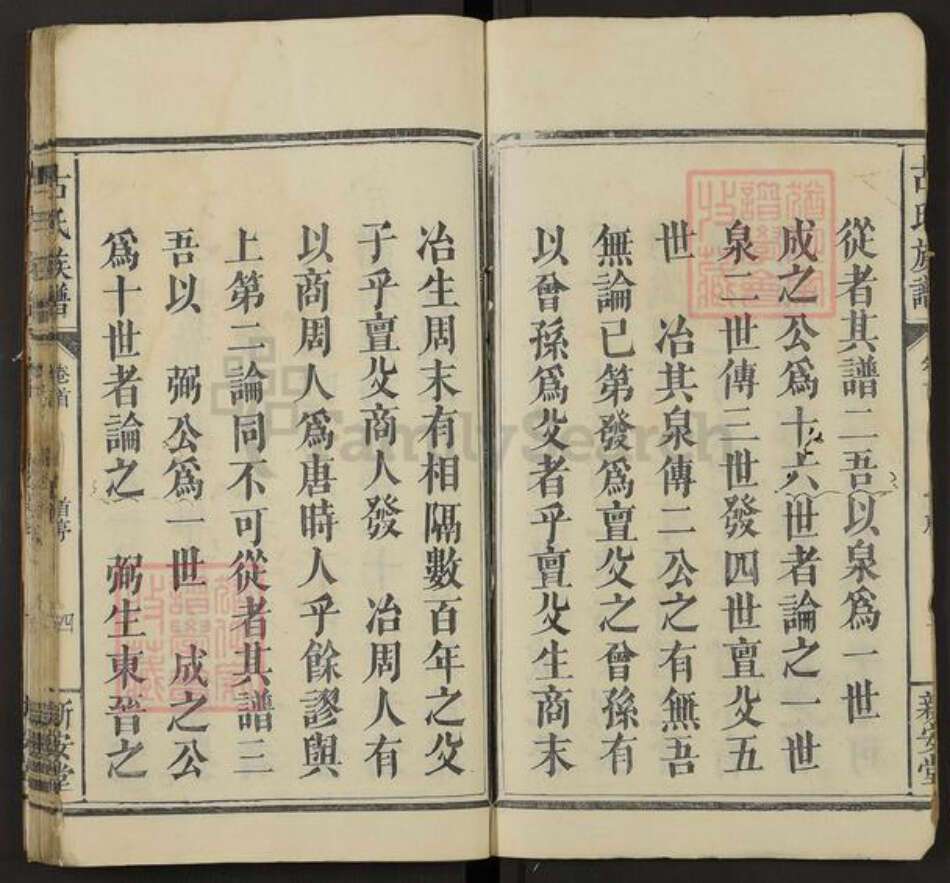 從者其譜二吾以泉為一世
成之公為十六世者論之一世
泉二世傳三世發四世亶父五
世 冶其泉傳二公之有無吾
無論已第發為亶父之曾孫有
以曾孫為父者乎亶父生商末
冶生周末有相隔數百年之父
子乎亶父商人發 冶周人有
以商周人為唐時人乎餘謬與
上第二論同不可從者其譜三
吾以 弼公為一世 成之公
為十世者論之 弼生東晉之
古氏族譜
卷首
首序
四
新安堂
FamilySearch